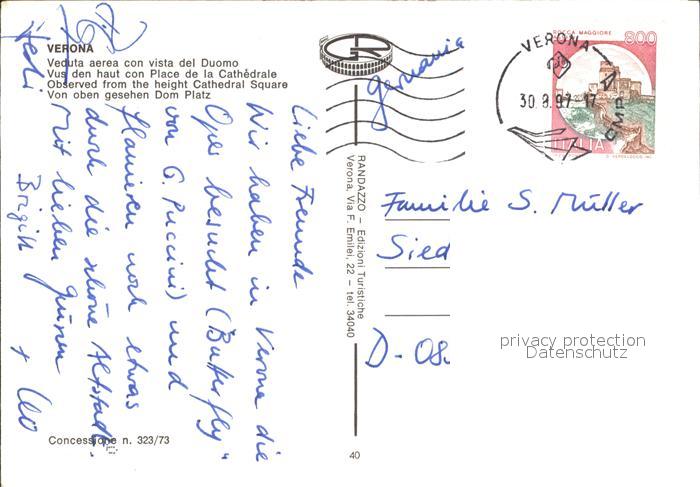 VERONA
Veduta aerea con vista del Duomo
Vus den haut con Place de la Cathêdrale
Observed from the height Cathedral Square
Von oben gesehen Dom Platz
Liebe Freunde
Wir haben in Verona die
Oper besucht (Butterfly"
von G. Puccini) und
flanieren noch etwas
durch die schöne Altstadt.
Mit lieben Grüssen
Brigitt + Leo
Concessione n. 323/73
RANDAZZO – Edizioni Turistiche
Verona, Via F. Emilei, 22 – tel. 34040
40
germania
VERONA
30.8.97-17
CMP
ROCCA MAGGIORE
800
ITALIA
Familie S. Müller
Sied
D-Os.
privacy protection
Datenschutz